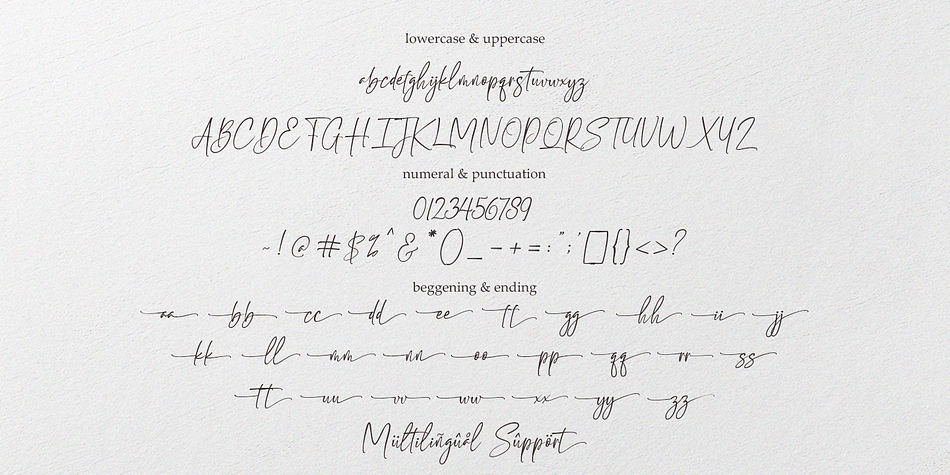 lowercase & uppercase
abcdefghijklmnopqrstuvwxyz
ABCDEFGHIJKLMNOPQRSTUVWXYZ
numeral & punctuation
0123456789
~!@#$%^&*()_-+=:";'[]{}<>?
beggening & ending
aa bb cc dd ee ff gg hh ii jj
kk ll mm nn oo pp qq rr ss
tt uu vv ww xx yy zz
Mültiliñgûål Sûppört